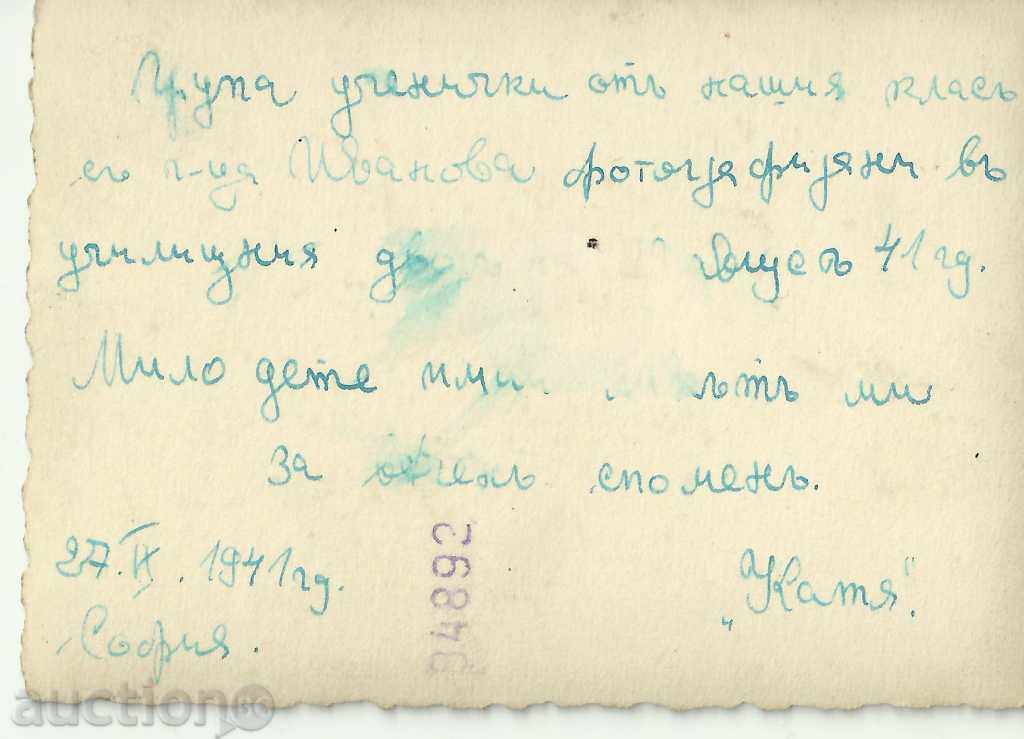 Група ученички отъ нашия класъ
съ г-ца Иванова фотографирани въ
училищния 41 год.
Мило дете ми
за споменъ.
27.IX.1941 год.
София.
"Катя".
94892
auction BG